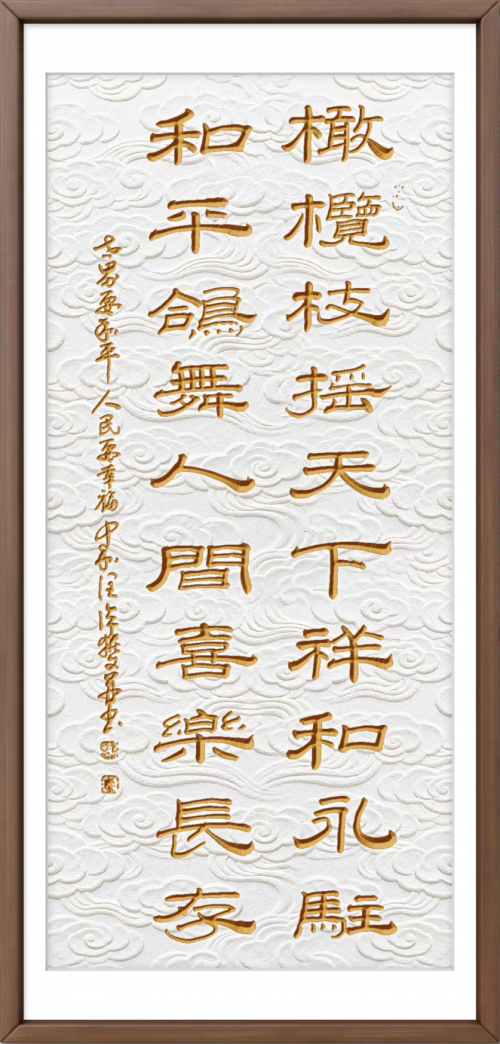 橄欖枝摇天下祥和永駐
和平鴿舞人間喜樂長存
世界要和平人民要幸福中国汪